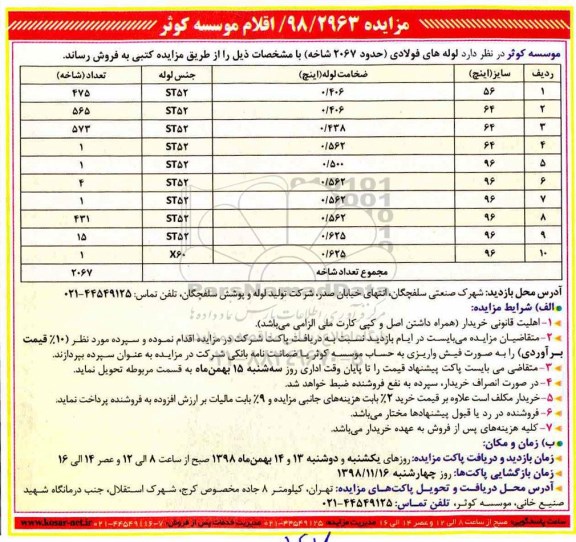 مزایده ۹۸/۲۹۶۳/ اقلام موسسه کوثر
موسسه کوثر در نظر دارد لوله های فولادی (حدود ۲۰۶۷ شاخه) با مشخصات ذیل را از طریق مزایده کتبی به فروش رساند.
ردیف سایز(اینچ) ضخامت لوله(اینچ) جنس لوله تعداد(شاخه)
۱ ۵۶ ۰/۴۰۶ ST۵۲ ۴۷۵
۲ ۶۴ ۰/۴۰۶ ST۵۲ ۵۶۵
۳ ۶۴ ۰/۴۳۸ ST۵۲ ۵۷۳
۴ ۶۴ ۰/۵۶۲ ST۵۲ ۱
۵ ۹۶ ۰/۵۰۰ ST۵۲ ۱
۶ ۹۶ ۰/۵۶۲ ST۵۲ ۴
۷ ۹۶ ۰/۵۶۲ ST۵۲ ۱
۸ ۹۶ ۰/۵۶۲ ST۵۲ ۴۳۱
۹ ۹۶ ۰/۶۲۵ ST۵۲ ۱۵
۱۰ ۹۶ ۰/۶۲۵ X۶۰ ۱
مجموع تعداد شاخه ۲۰۶۷
آدرس محل بازدید: شهرک صنعتی سلفچگان، انتهای خیابان صدر، شرکت تولید لوله و پوشش سلفچگان، تلفن تماس: ۴۴۵۴۹۱۲۵-۰۲۱
الف) شرایط مزایده:
۱-اهلیت قانونی خریدار (همراه داشتن اصل و کپی کارت ملی الزامی می‌باشد).
۲-متقاضیان مزایده می‌بایست در ایام بازدید نسبت به دریافت پاکت شرکت در مزایده اقدام نموده و سپرده مورد نظر (۱۰٪ قیمت
برآوردی) را به صورت فیش واریزی به حساب موسسه کوثر یا ضمانت نامه بانکی شرکت در مزایده به عنوان سپرده بپردازند.
۳-متقاضی می بایست پاکت پیشنهاد قیمت را تا پایان وقت اداری روز سه‌شنبه ۱۵ بهمن‌ماه به قسمت مربوطه تحویل نماید.
۴-در صورت انصراف خریدار، سپرده به نفع فروشنده ضبط خواهد شد.
۵-خریدار مکلف است علاوه بر قیمت خرید ۲٪ بابت هزینه‌های جانبی مزایده و ۹٪ بابت مالیات بر ارزش افزوده به فروشنده پرداخت نماید.
۶-فروشنده در رد یا قبول پیشنهادها مختار می‌باشد.
۷-کلیه هزینه‌های پس از فروش به عهده خریدار می‌باشد.
ب) زمان و مکان:
زمان بازدید و دریافت پاکت مزایده: روزهای یکشنبه و دوشنبه ۱۳ و ۱۴ بهمن‌ماه ۱۳۹۸ صبح از ساعت ۸ الی ۱۲ و عصر ۱۴ الی ۱۶
زمان بازگشایی پاکت‌ها: روز چهارشنبه ۱۳۹۸/۱۱/۱۶
آدرس محل دریافت و تحویل پاکت‌های مزایده: تهران، کیلومتر ۸ جاده مخصوص کرج، شهرک استقلال، جنب درمانگاه شهید
صنیع خانی، موسسه کوثر، تلفن تماس: ۴۴۵۴۹۱۲۵-۰۲۱
ساعت پاسخگویی: صبح از ساعت ۸ الی ۱۲ و عصر ۱۴ الی ۱۶ مدیریت مزایده: ۴۴۵۴۹۱۲۵-۰۲۱ مدیریت خدمات پس از فروش: ۷-۴۴۵۴۹۱۴۶-۰۲۱ www.kosar-ori.ir
ParsNamadData